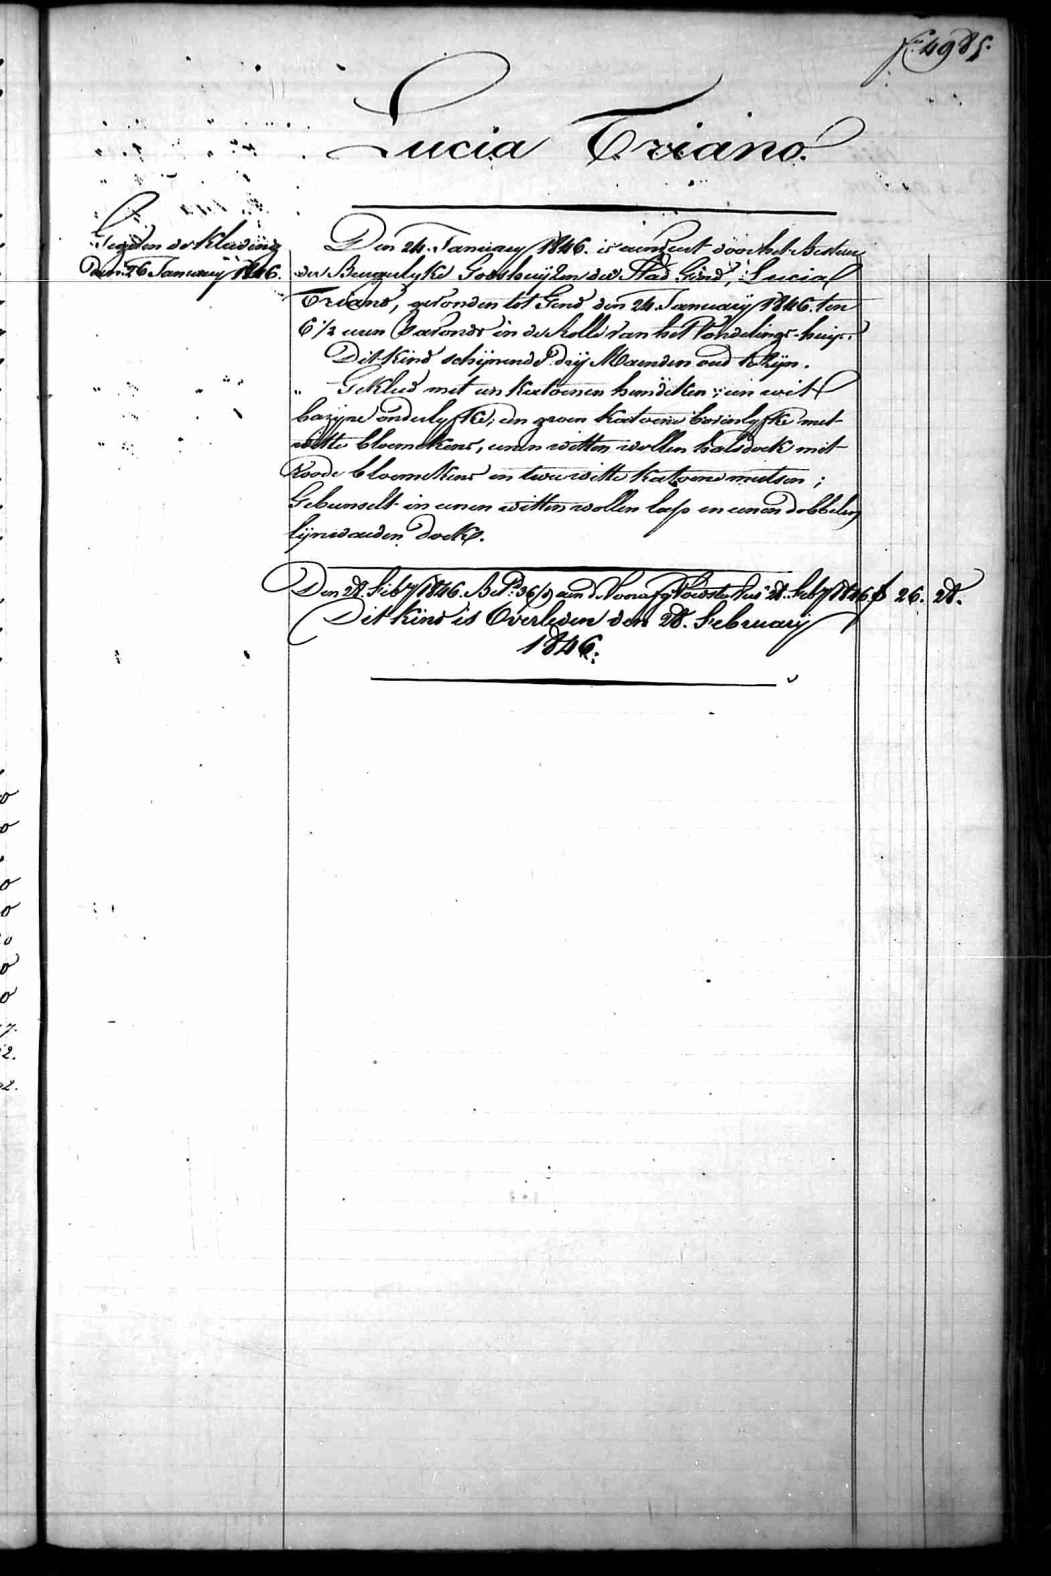 f.° 4985.
Lucia Triano.
Gegeven de Kleeding
den 26 Januarij 1846.
Den 24. Januarij 1846. is aenveert door het Bestuer
der Burgerlyke Godshuijzen der Stad Gend, Lucia
Triano, gevonden tot Gend den 24 Januarij 1846. ten
6 1/2 uren S'avonds in de Rolle van het Vondelings-huijs.
Dit kind schijnende drij Maenden oud te zijn.
Gekleed met een katoenen hemdeken; een wit
bazijne onderlyfke, een groen katoene bovenlyfke met
witte bloemekens, eenen witten wollen halsdoek met
Roode bloemekens en twee witte katoene mutsen;
Gebunselt in eenen witten wollen lap en eenen dobbelen
lijnwaeden doek.
Den 28 Feb.ry 1846. Be 36 aen de 28. Feb.ry 1846 f 26. 28.
Dit kind is Overleden den 28. Februarij
1846.